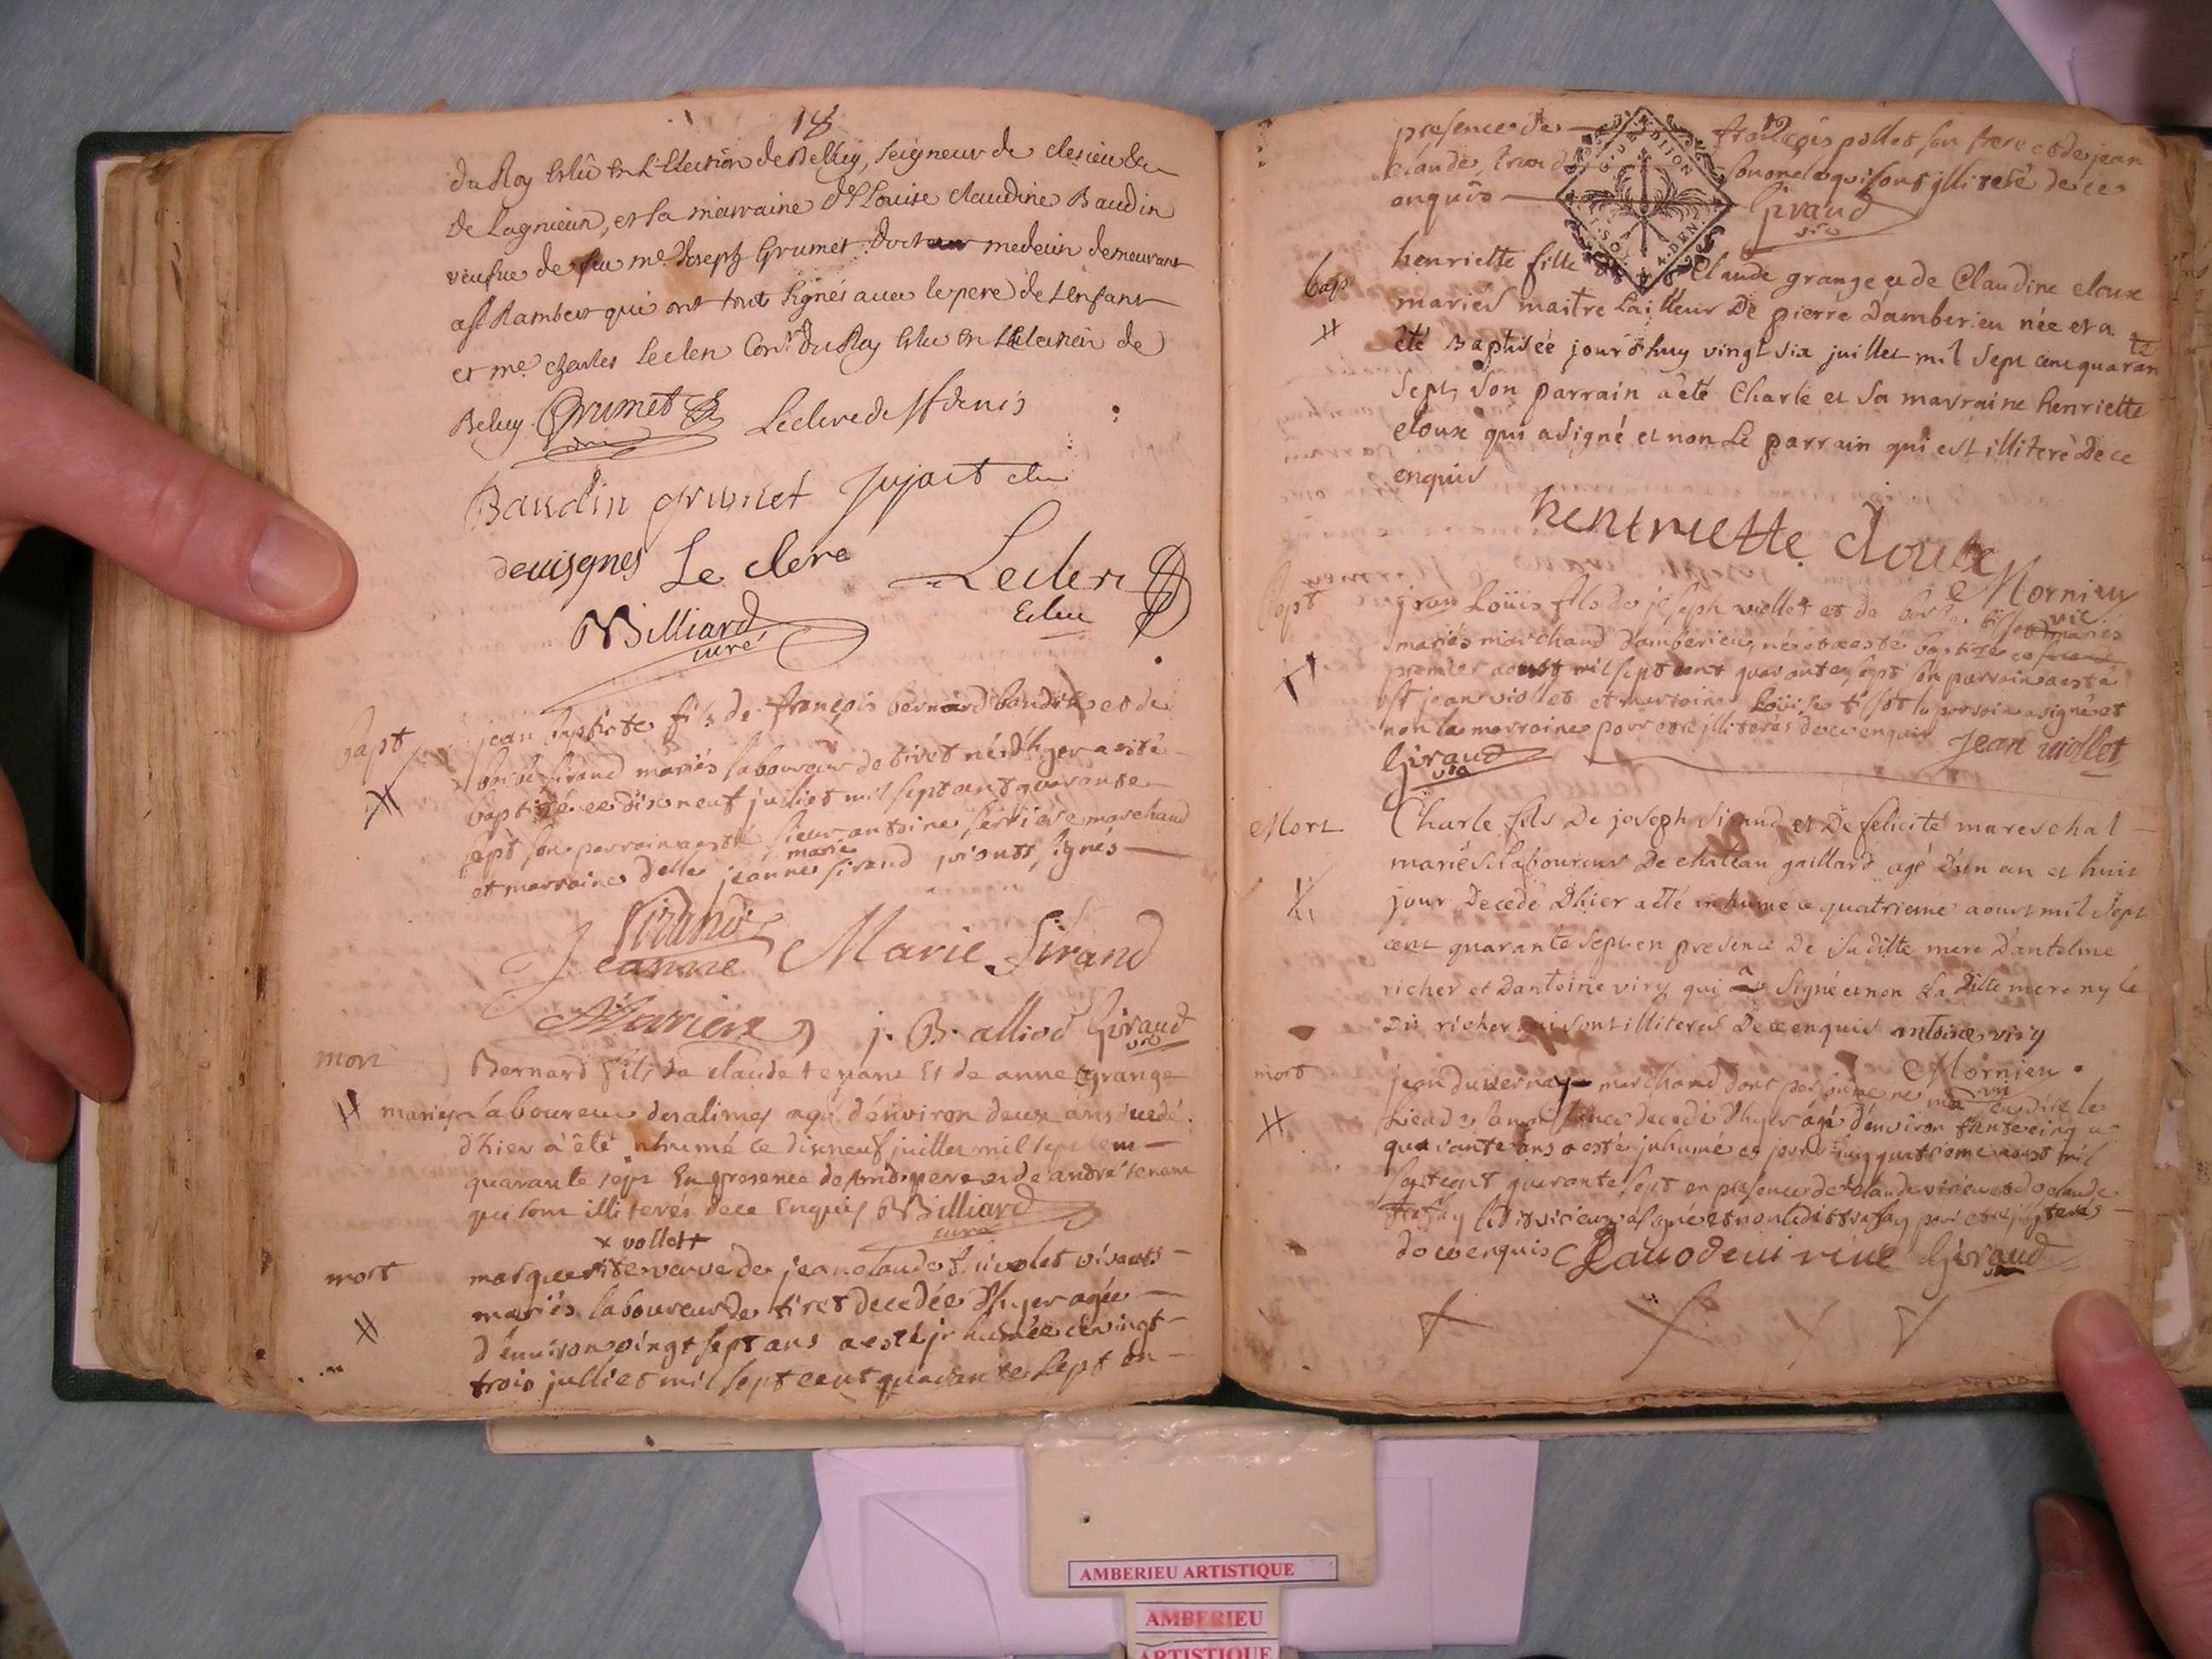 18
du Roy Eslû en L'Election de Belley, seigneur de
de Lagnieux, et sa marraine de Louise Claudine Baudin
veufue de feu me Joseph Grumet Docteur medecin demeurant
a st Rambert qui ont tout signés avec le pere de L'enfant
et me charles leclerc Conr du Roy Eslu en L'Election de
Belley Grumet Leclerc de st denis
Baudin grumet
Le clerc Leclerc
Eslu
Billiard
curé
bapt jean baptiste fils de françois bernard et de
sirand mariés laboureur de tiret né d'hyer a esté
baptizé ce dixneuf juillet mil sept cent quarante
sept son parrain a esté sieur antoine marchand
marie
et marraine delle jeanne sirand qui ont signés
Sirand
Jeanne Marie Sirand
j. B. alliod Giraud
vic
mort Bernard fils de claude tenant Et de anne grange
mariés Laboureur des alimes agé d'environ deux ans decedé
d'hier a été inhumé ce dixneuf juillet mil sept cent
quarante sept En presence de pere et de andré tenant
qui sont illiterés de ce Enquis Billiard
curé
x vollet
mort marguerite veuve de jean claude vivants
mariés laboureur de tiret decedée d'hyer agée
d'environ vingt sept ans a esté jnhumée ce vingt
trois julliet mil sept cent quarante sept en
19
presence de françois pollet son frere et de jean
claude son oncle qui sont illiteré de ce
enquis Giraud
vic
bap henriette fille de Claude grange et de Claudine cloux
mariés maitre tailleur De pierre D'amberieu née et a
été Baptisée jourd'huy vingt six juillet mil sept cent quarante
sept, son parrain a eté Charle et sa marraine henriette
cloux qui a signé et non Le parrain qui est illiteré De ce
enquis
henriette cloux
Mornieu
vic
bapt jean Loüis fils de joseph viollet et de tissot
mariés marchand d'amberieu, né et a esté baptizé ce
premier aoust mil sept cent quarante sept son parrain a esté
st jean viollet et marraine Loüise tissot le parrain a signé et
non la marraine pour estre illiterés de ce enquis Jean viollet
Giraud
vic
Mort Charle fils De joseph sirand et De felicité mareschal
mariés Laboureur De chateau gaillard agé d'un an et huit
jour Decedé D'hier a été inhumé ce quatrieme aoust mil sept
cent quarante sept en presence De sa ditte mere D'antelme
richer et D'antoine viry qui a signé et non La Ditte mere ny le
Dit richer qui sont illiterés De ce enquis antoine viry
Mornieu
vic
mort jean duvernay marchand dont personne ne m'a en dire le
lieu de sa naissance decedé d'hyer agé d'environ trente cinq a
quarante ans a esté jnhumé ce jourd'huy quatrieme aoust mil
sept cent quarante sept en presence de claude virieu et de claude
ledit virieux a signé et non ledit pour etre jlliterés
de ce enquis Giraud
vic
AMBERIEU ARTISTIQUE
AMBERIEU
ARTISTIQUE